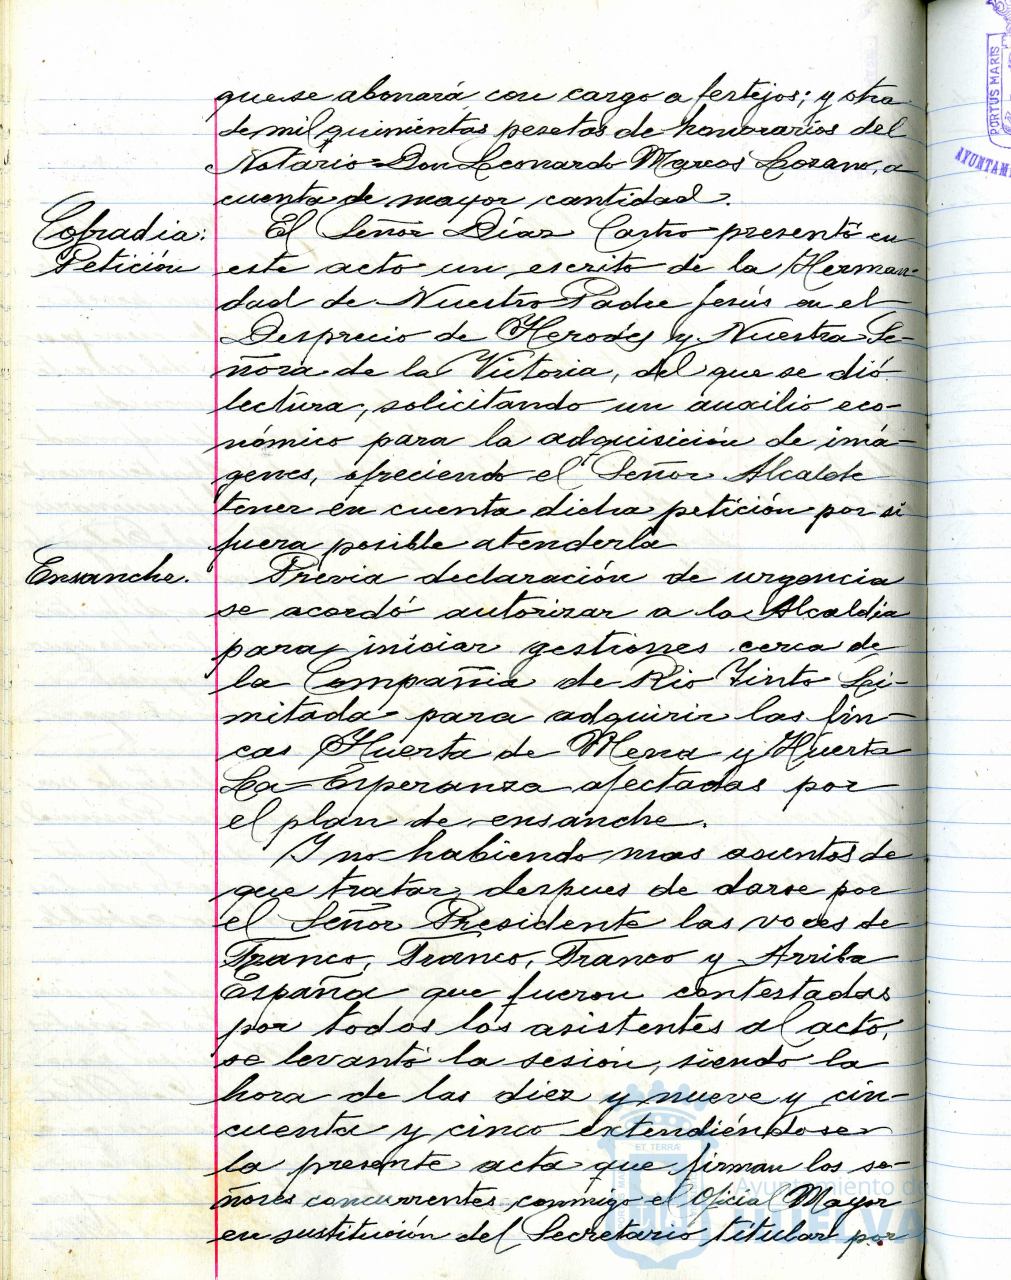 que se abonará con cargo a festejos; y otra
de mil quinientas pesetas de honorarios del
Notario Don Leonardo Marcos Lozano, a
cuenta de mayor cantidad.
Cofradia:
Petición
El Señor Díaz Castro presentó en
este acto un escrito de la Herman-
dad de Nuestro Padre Jesús en el
Desprecio de Herodes y Nuestra Se-
ñora de la Victoria, del que se dió
lectura, solicitando un auxilio eco-
nómico para la adquisición de imá-
genes, ofreciendo el Señor Alcalde
tener en cuenta dicha petición por si
fuera posible atenderla
Ensanche.
Previa declaración de urgencia
se acordó autorizar a la Alcaldia
para iniciar gestiones cerca de
la Compañia de Rio Tinto Li-
mitada para adquirir las fin-
cas Huerta de Mena y Huerta
La Esperanza afectadas por
el plan de ensanche.
Y no habiendo mas asuntos de
que tratar, despues de darse por
el Señor Presidente las voces de
Franco, Franco, Franco y Arriba
España que fueron contestadas
por todos los asistentes al acto,
se levantó la sesión, siendo la
hora de las diez y nueve y cin-
cuenta y cinco extendiéndose
la presente acta que firman los se-
ñores concurrentes conmigo el Oficial Mayor
en sustitución del Secretario titular por
PORTUS MARIS
AYUNTAM
ET TERRA
Ayuntamiento de
HUELVA